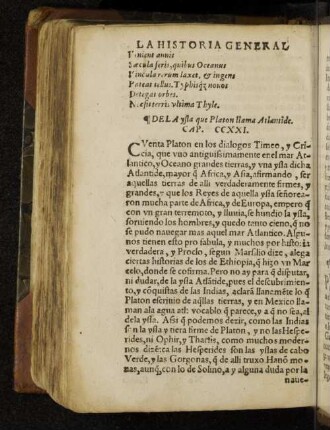 LA HISTORIA GENERAL
Venient annis
Sæcula seris, quibus Oceanus
Vincula rerum laxet, & ingens
Pateat tellus, Typhisq; nouos
Detegat orbes.
Nec sit terris vltima Thyle.
¶ DE LA ysla que Platon llama Atlantide.
CAP. CCXXI.
CVenta Platon en los dialogos Timeo, y Cri-
cia, que vuo antiguissimamente en el mar At-
lantico, y Oceano grandes tierras, y vna ysla dicha
Atlantide, mayor q̃ Africa, y Asia, afirmando, ser
aquellas tierras de alli verdaderamente firmes, y
grandes, y que los Reyes de aquella ysla señorea-
ron mucha parte de Africa, y de Europa, empero q̃
con vn gran terremoto, y lluuia, se hundio la ysla,
soruiendo los hombres, y quedo tanto cieno, q̃ no
se pudo nauegar mas aquel mar Atlantico. Algu-
nos tienen esto pro fabula, y muchos por histo:ia
verdadera, y Proclo, segun Marsilio dize, alega
ciertas historias de los de Ethiopia, q̃ hizo vn Mar
celo, donde se confirma. Pero no ay para q̃ disputar,
ni dudar, de la ysla Atlãtide, pues el descubrimien-
to, y cõquistas de las Indias, aclarã llanamẽte lo q̃
Platon escriuio de aq̃llas tierras, y en Mexico lla-
man ala agua atl: vocablo q̃ parece, y a q̃ no sea, al
dela ysla. Assi q̃ podemos dezir, como las Indias
sõ la ysla y tiera firme de Platon, y no las Hespe-
rides, ni Ophir, y Tharsis, como muchos moder-
nos dizẽ: ca las Hesperides son las yslas de cabo
Verde, y las Gorgonas, q̃ de alli truxo Hanõ mo-
nas, aunq̃, con lo de Solino, a y alguna duda por la
naue-